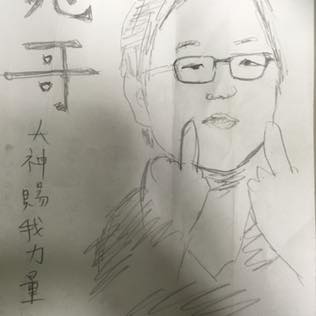 哥
大神賜我力量